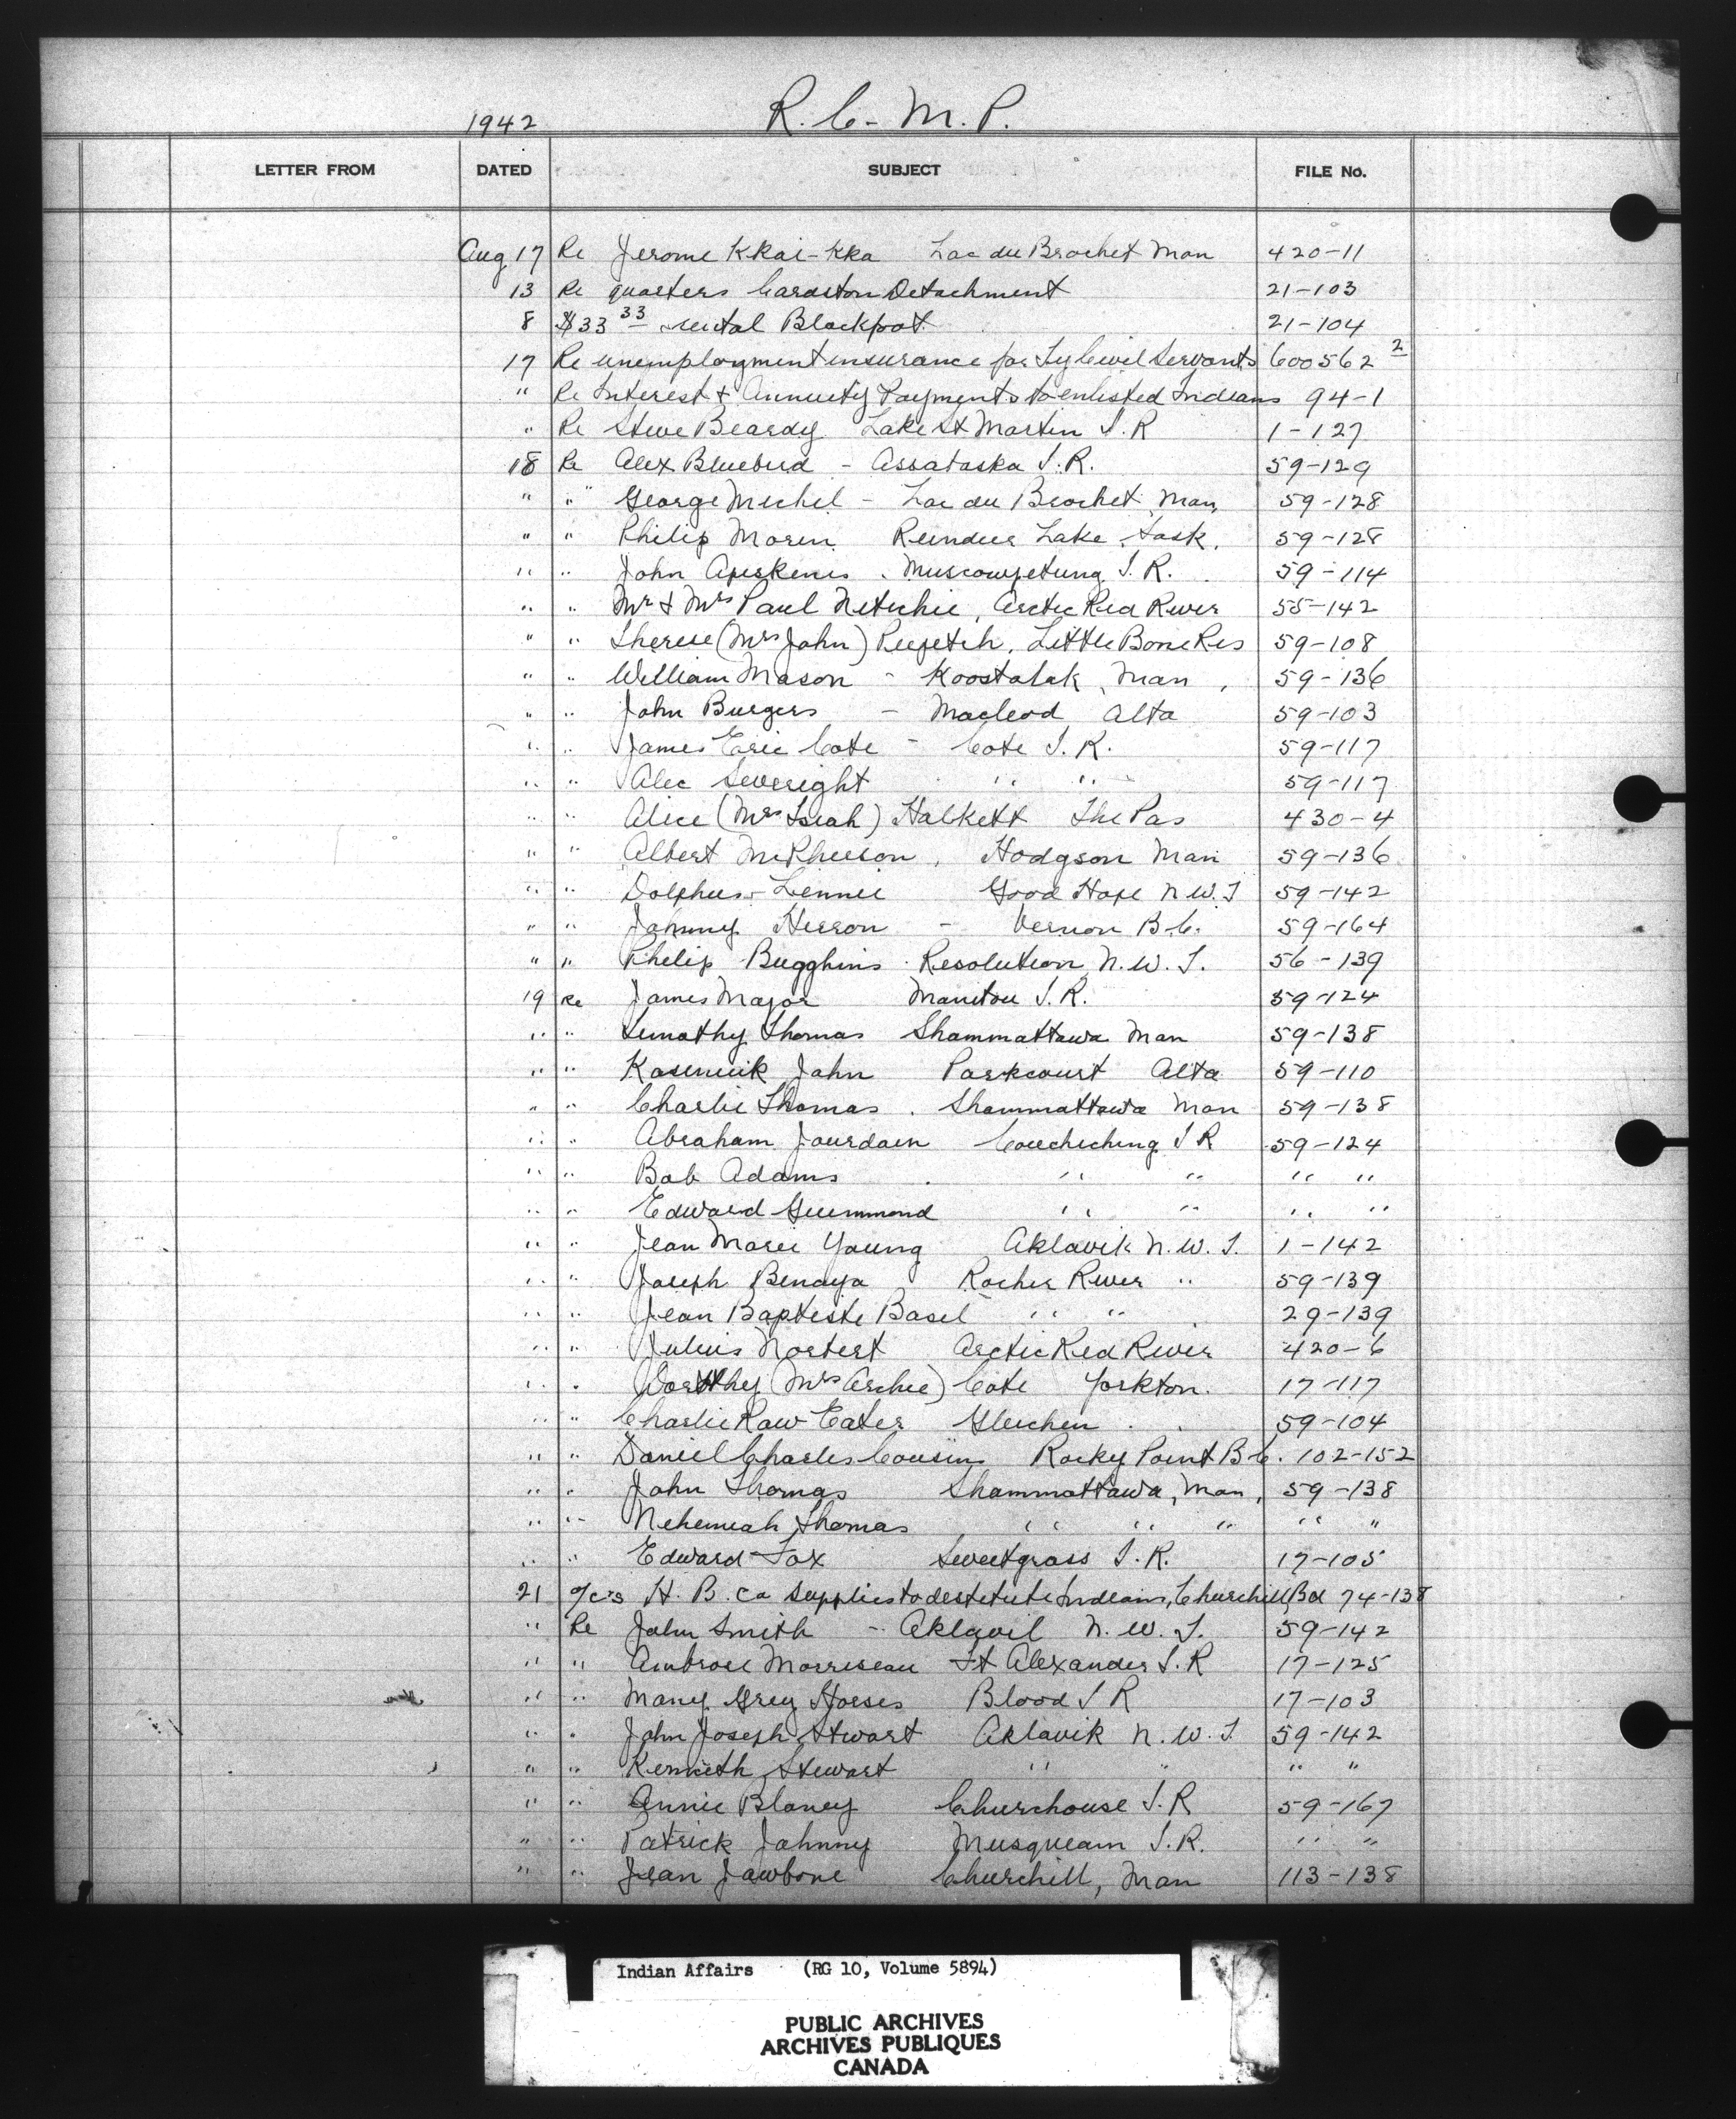 1942 R. C. M. P.
LETTER FROM DATED SUBJECT FILE No.
Aug 17 Re Jerome Kkai-Kka Lac du Brochet Man 420-11
13 Re quarters Cardston Detachment 21-103
8 $33 33 rental Blackfoot 21-104
17 Re unemployment insurance for Ty Civil Servants 600562 2
" Re Interest & Annuity Payments to enlisted Indians 94-1
" Re Steve Beardy Lake St Martin I.R 1-127
18 Re Alex Bluebird - Assabaska I.R. 59-129
" " George Michel - Lac du Brochet Man, 59-128
" " Philip Morin Reindeer Lake, Sask. 59-128
" " John Apiskenis. Muscowpetung I.R. 59-114
" " Mr & Mrs Paul Netichie, Arctic Red River 55-142
" " Therese (Mrs John) Peepetch, Little Bone Res 59-108
" " William Mason - Koostatak, Man, 59-136
" " John Burgers - Macleod Alta 59-103
" " James Eric Cote - Cote I.R. 59-117
" " Alec Severight " " 59-117
" " Alice (Mrs Isiah) Halkett The Pas 430-4
" " Albert McPherson, Hodgson Man 59-136
" " Dolphus Lennie Good Hope N.W.T 59-142
" " Johnny Herron - Vernon B.C. 59-164
" " Philip Bugghins Resolution N.W.T. 56-139
19 Re James Major Manitou I.R. 59-124
" " Timothy Thomas Shammattawa Man 59-138
" " John Parkcourt Alta 59-110
" " Charlie Thomas. Shammattawa Man 59-138
" " Abraham Jourdain Couchiching I R 59-124
" " Bob Adams " " " "
" " Edward Guimmond " " " "
" " Jean Marie Young Aklavik N.W.T. 1-142
" " Joseph Benaya Rocher River " 59-139
" " Jean Baptiste Basel " " 29-139
" " Julius Norbert Arctic Red River 420-6
" " Dorothy (Mrs Archie) Cote Yorkton. 17-117
" " Charlie Raw Eater Gleichen 59-104
" " Daniel Charles Cousins Rocky Point B.C. 102-152
" " John Thomas Shammattawa, Man, 59-138
" " Nehemiah Thomas " " " " "
" " Edward Fox Sweetgrass I.R. 17-105
21 o/c's H. B. Co supplies to destitute Indians, Churchill, Bd 74-138
" Re John Smith - Aklavil N.W.T. 59-142
" " Ambrose Morriseau Ft Alexander I.R 17-125
" " Many Grey Horses Blood I R 17-103
" " John Joseph Stwart Aklavik N.W.T 59-142
" " Kenneth Stewart " " " "
" " Annie Blaney Churchouse I.R 59-167
" " Patrick Johnny Musqueam I.R. " "
" " Jean Jawbone Churchill, Man 113-138
Indian Affairs (RG 10, Volume 5894)
PUBLIC ARCHIVES
ARCHIVES PUBLIQUES
CANADA